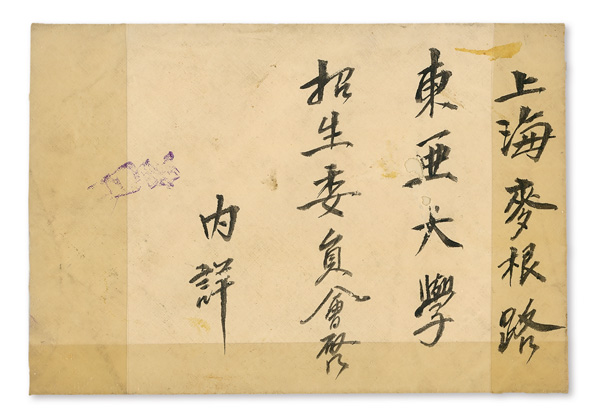 上海麥根路
東亜大學
招生委員會啓
内詳